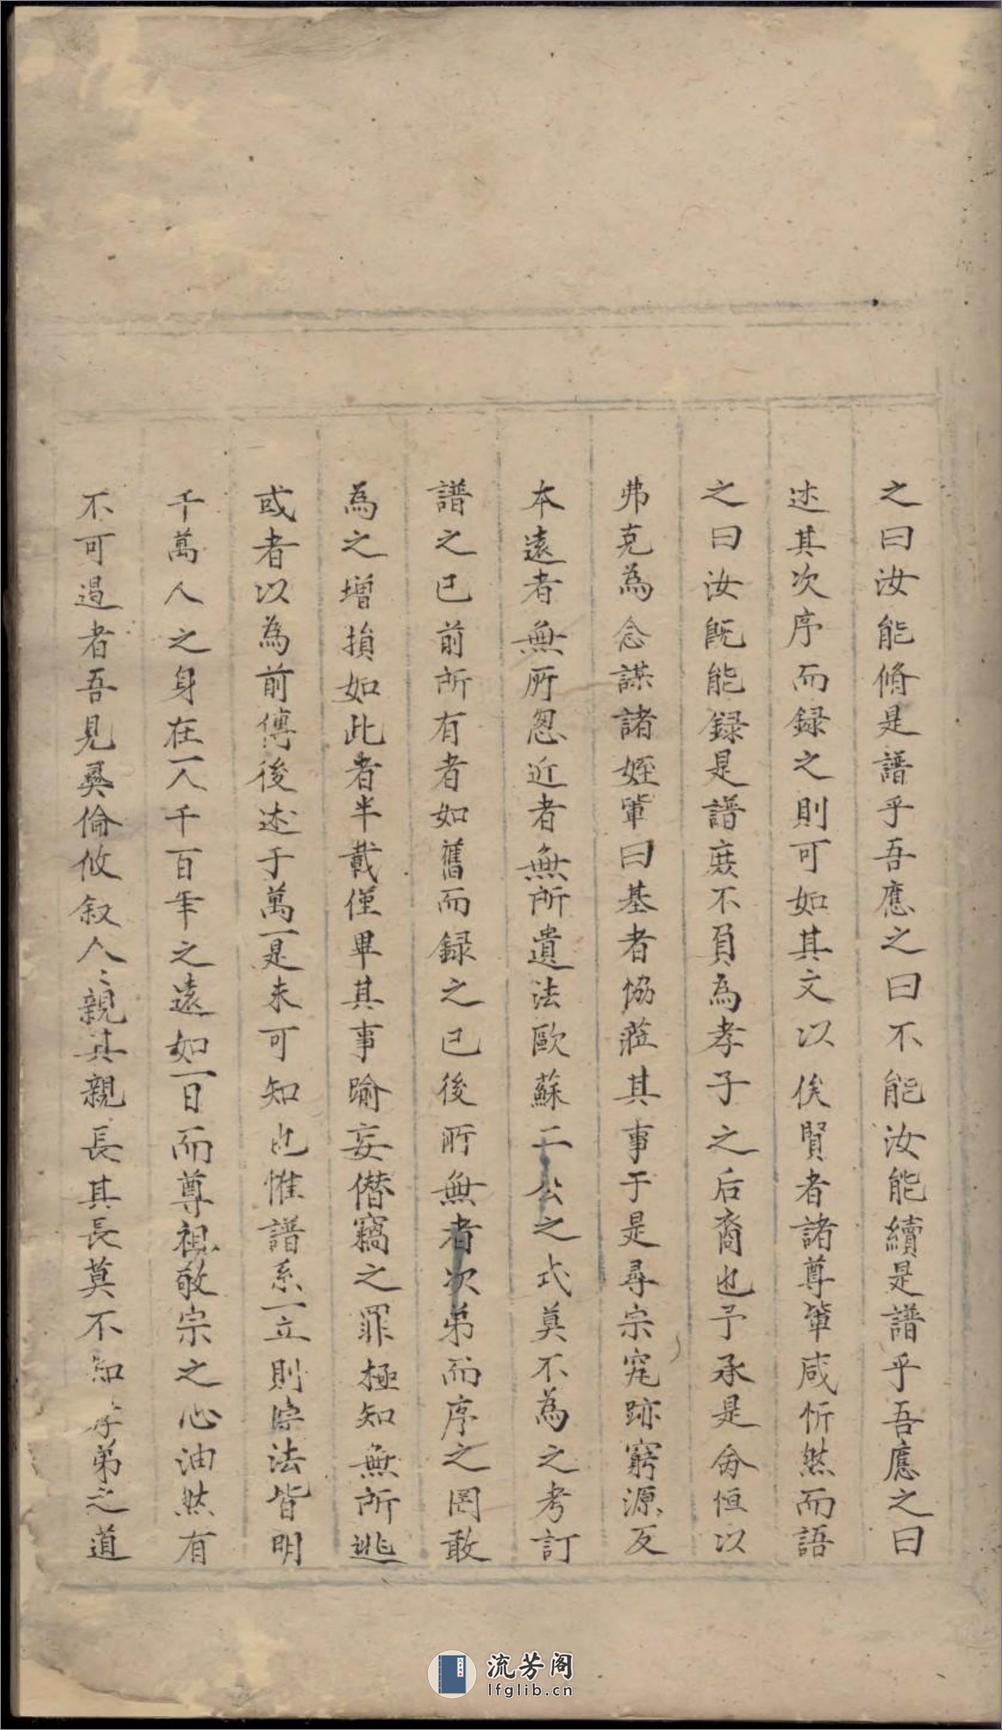 之曰汝能脩是譜乎吾應之曰不能汝能續是譜乎吾應之曰
述其次序而録之則可如其文以俟賢者諸尊軰咸忻然而語
之曰汝旣能録是譜庶不負為孝子之后裔也予承是命恒以
弗克為念謀諸姪軰曰基者恊蒞其事于是尋宗究跡窮源反
本遠者無所忽近者無所遺法歐蘇二公之式莫不為之考訂
譜之已前所有者如舊而録之已後所無者次弟而序之罔敢
為之增損如此者半載僅畢其事踰妄僣竊之罪極知無所逃
或者以為前傳後述于萬一是未可知也惟譜系一立則宗法皆明
千萬人之身在一人千百年之遠如一日而尊祖敬宗之心油然有
不可遏者吾見彜倫攸叙人〻親其親長其長莫不知孝弟之道
流芳阁
lfglib.cn